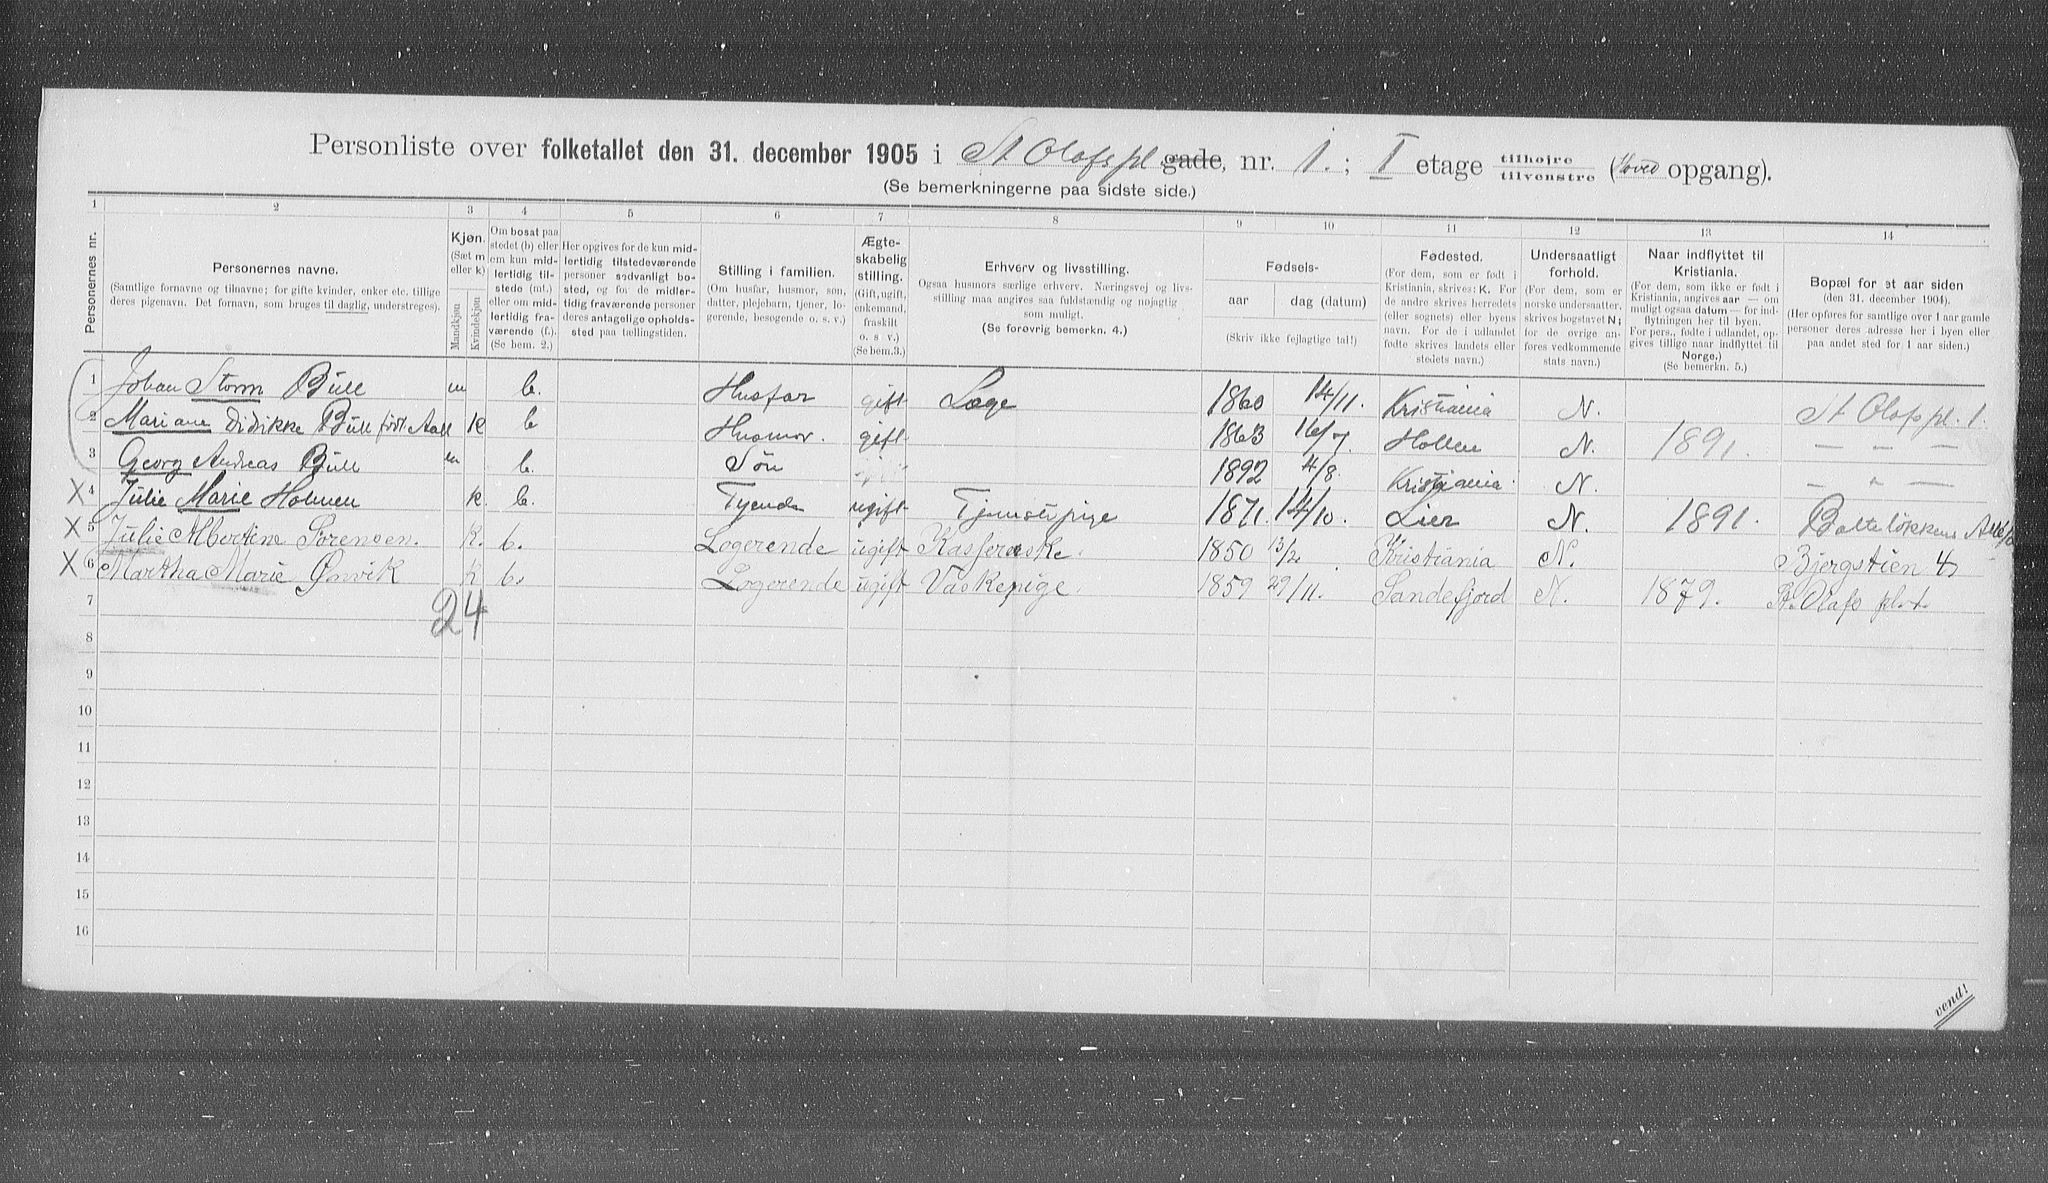 Personliste over folketallet den 31. december 1905 i St Olafs pl gade, nr. 1. ; I etage tilhøjre tilvenstre (Hoved opgang).
(Se bemerkningerne paa sidste side.)
1 2 3 4 5 6 7 8 9 10 11 12 13 14
Personernes nr.
Personernes navne.
(Samtlige fornavne og tilnavne; for gifte kvinder, enker etc. tillige deres pigenavn. Det fornavn, som bruges til daglig, understreges).
Kjøn. (Sæt m eller k)
Mandkjøn
Kvindekjøn
Om bosat paa stedet (b) eller om kun midlertidig tilstede (mt.) eller om midlertidig fraværende (f.). (Se bem. 2.)
Her opgives for de kun midlertidig tilstedeværende personer sædvanligt bosted, og for de midlertidig fraværende personer deres antagelige opholdssted paa tællingstiden.
Stilling i familien.
(Om husfar, husmor, søn, datter, plejebarn, tjener, logerende, besøgende o. s. v.)
Ægteskabelig stilling.
(Gift, ugift, enkemand, fraskilt o. s v.)
(Se bem.3.)
Erhverv og livsstilling.
Ogsaa husmors særlige erhverv. Næringsvej og livsstilling maa angives saa fuldstændig og nøjagtig som muligt.
(Se forøvrig bemerkn. 4.)
Fødsels-
aar dag (datum)
(Skriv ikke fejlagtige tal!)
Fødested.
(For dem, som er født i Kristiania, skrives: K. For de andre skrives herredets (eller sognets) eller byens navn. For de i udlandet fødte skrives landets eller stedets navn.)
Undersaatligt forhold.
(For dem, som er norske undersaatter, skrives bogstavet N; for de øvrige anføres vedkommende stats navn.)
Naar indflyttet til Kristiania.
(For dem, som ikke er født i Kristiania, angives aar — om muligt ogsaa datum — for indflytningen her til byen. For pers., fødte i udlandet, opgives tillige naar indflyttet til Norge.)
(Se bemerkn. 5.)
Bopæl for et aar siden
(den 31. december 1904.)
(Her opføres for samtlige over 1 aar gamle personer deres adresse her i byen eller paa andet sted for 1 aar siden.)
1 Johan Storm Bull m b. Husfar gift Læge 1860 14/11. Kristiania N. St Olafs pl. 1.
2 Mariane Didikke Bull født Aall k b Husmor. gift 1863 16/7 Hollen N. 1891. — — —
3 Georg Andreas Bull m b. Søn 1892 4/8. Kristiania. N. — " —
X 4 Julie Marie Holmen k. b. Tyende ugift Tjenestepige 1871. 14/10. Lier N. 1891. Balteløkkens Allé
X 5 Julie Albertine Sørensen. K. b. Logerende ugift 1850 13/2. Kristiania N. Bjergstien 4
X 6 Martha Marie Øsvik K b. Logerende ugift Vaskepige. 1859 29/11. Sandefjord N. 1879. St. Olafs pl. 1.
7 24
8
9
10
11
12
13
14
15
16
vend!